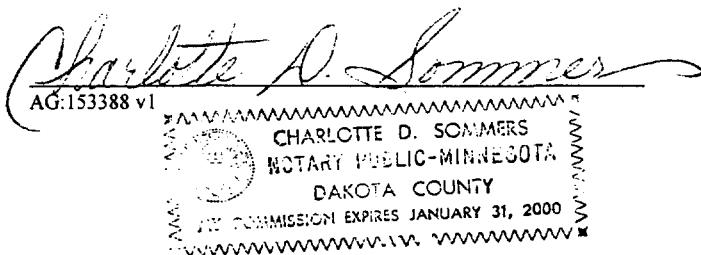 Charlotte D. Sommers
AG:153388 v1
CHARLOTTE D. SOMMERS
NOTARY PUBLIC-MINNESOTA
DAKOTA COUNTY
MY COMMISSION EXPIRES JANUARY 31, 2000